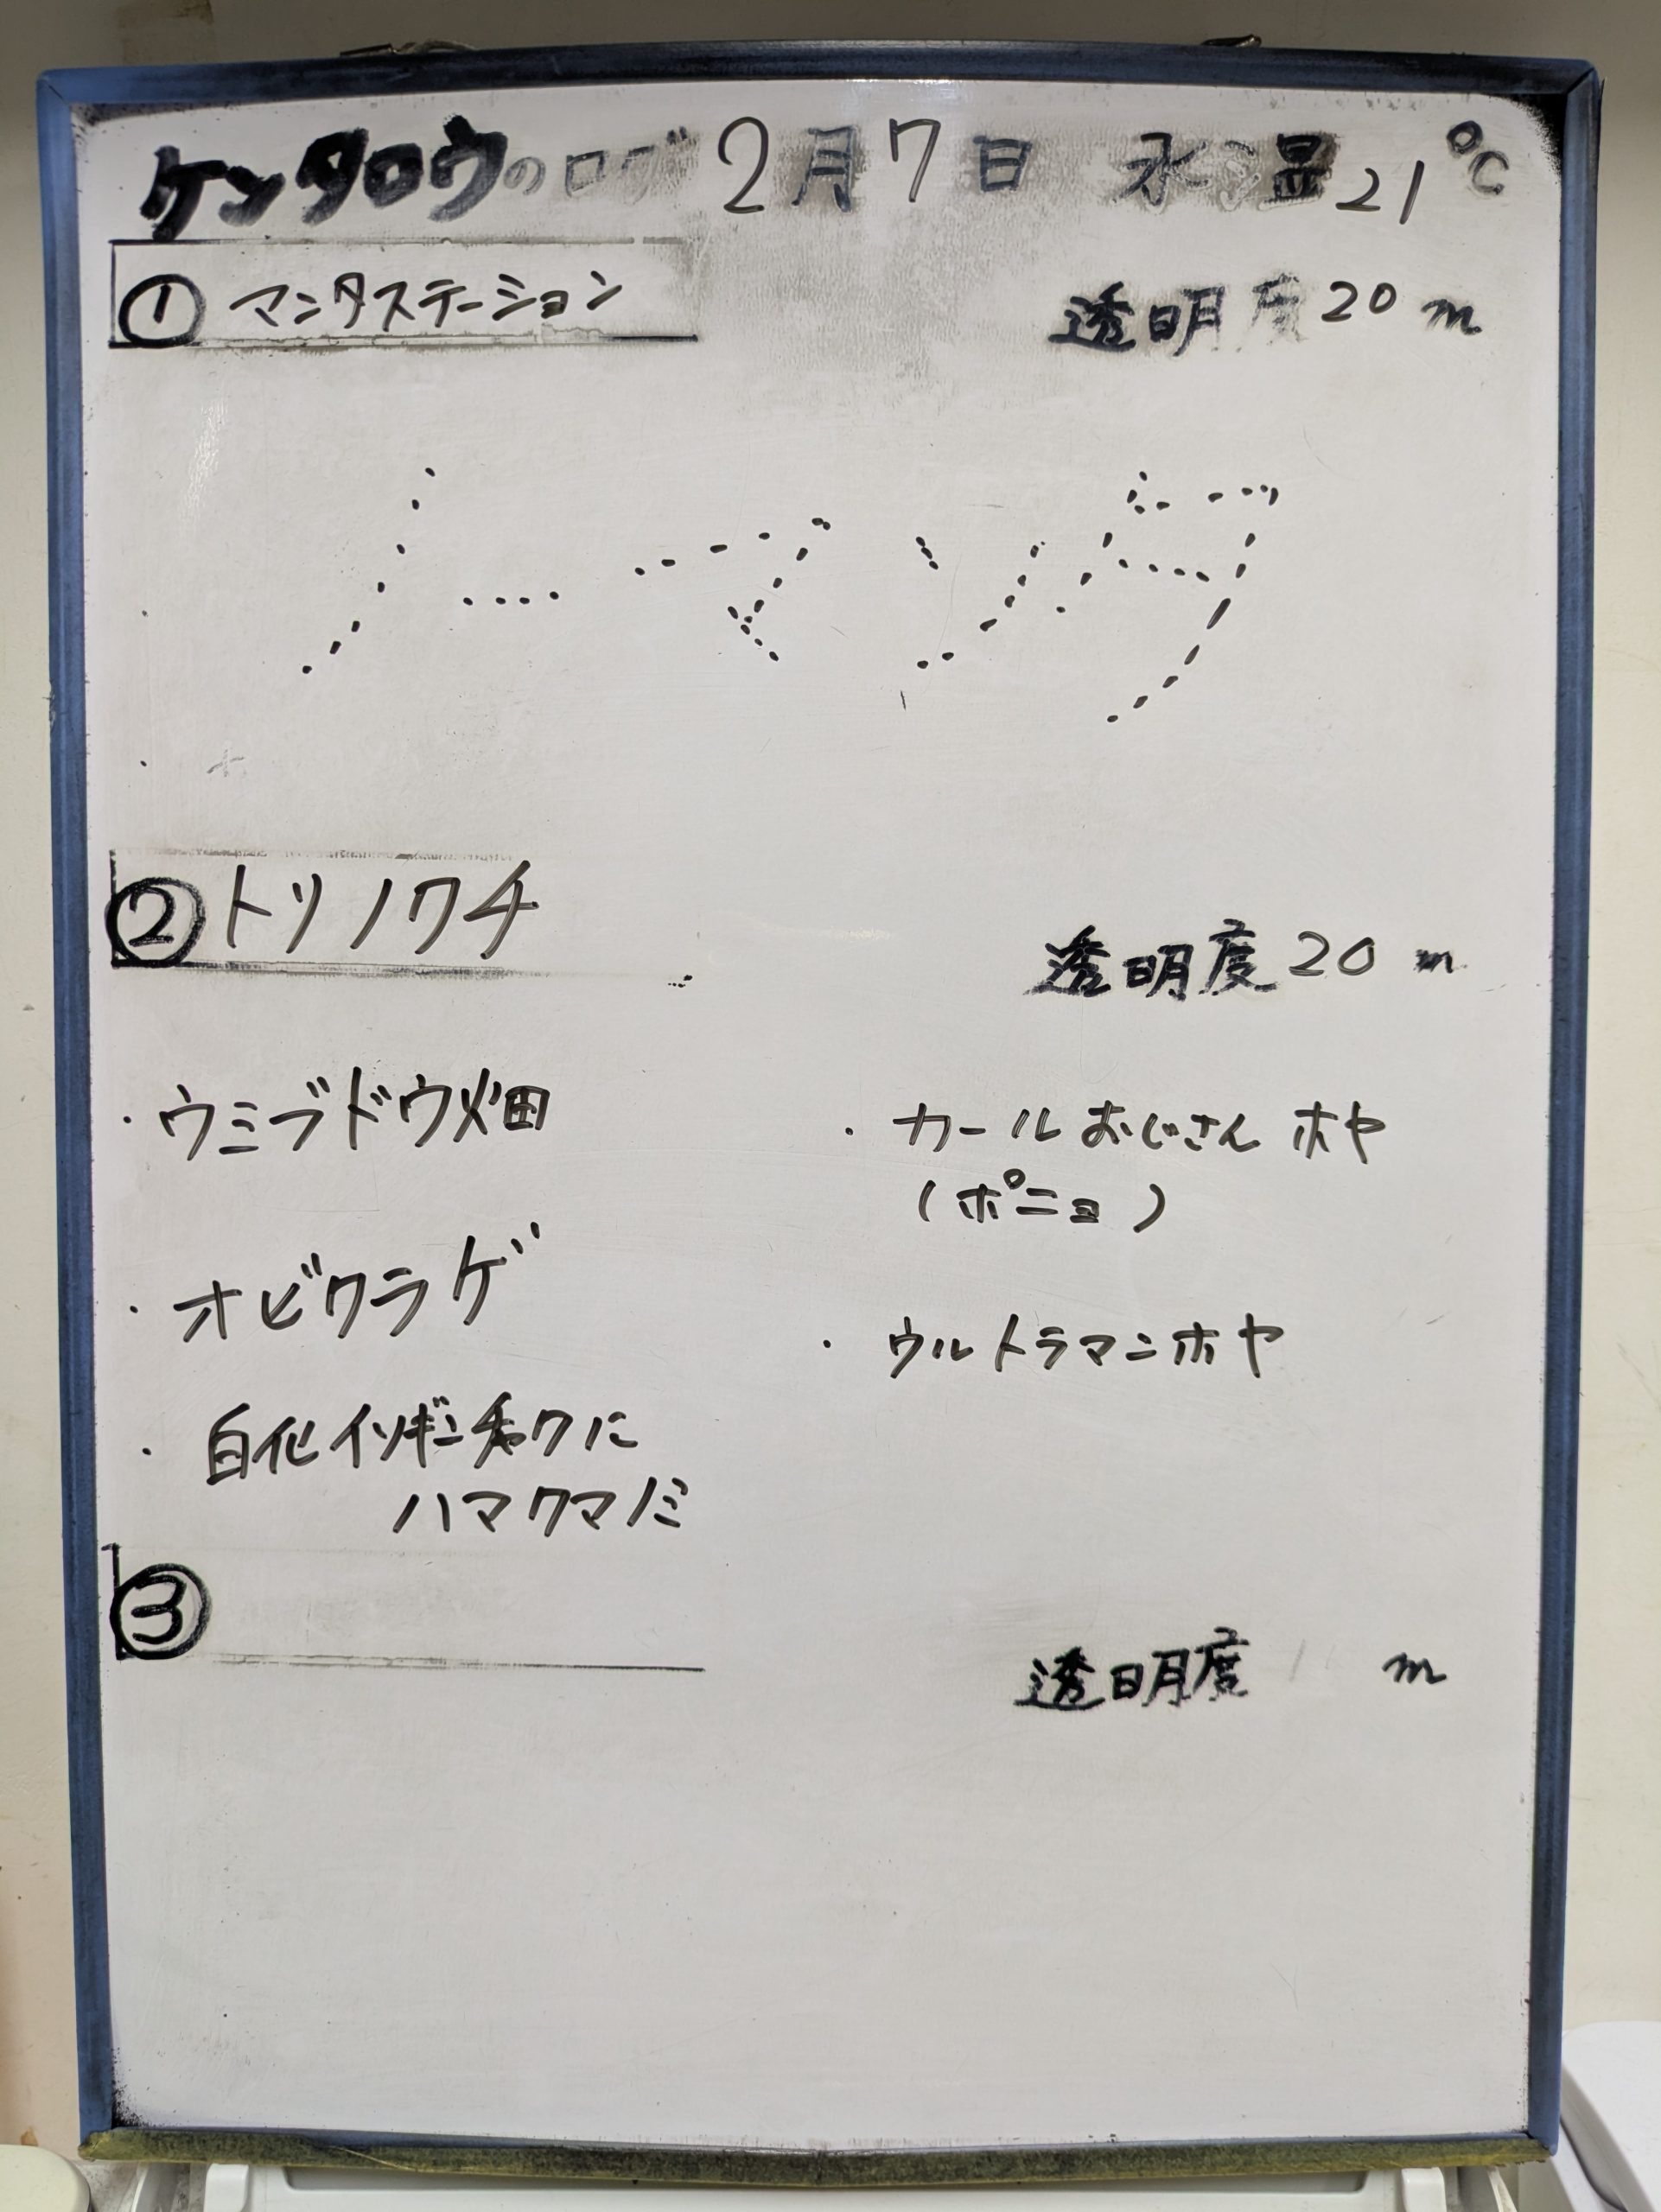 ケンタロウのログ 2月7日 水温21℃
① マンタステーション 透明度20m
ノーマンタ
② トリノクチ 透明度20m
・ウミブドウ畑
・オビクラゲ
・白化イソギンチャクに
ハマクマノミ
・カールおじさんホヤ
(ポニョ)
・ウルトラマンホヤ
③ 透明度 m